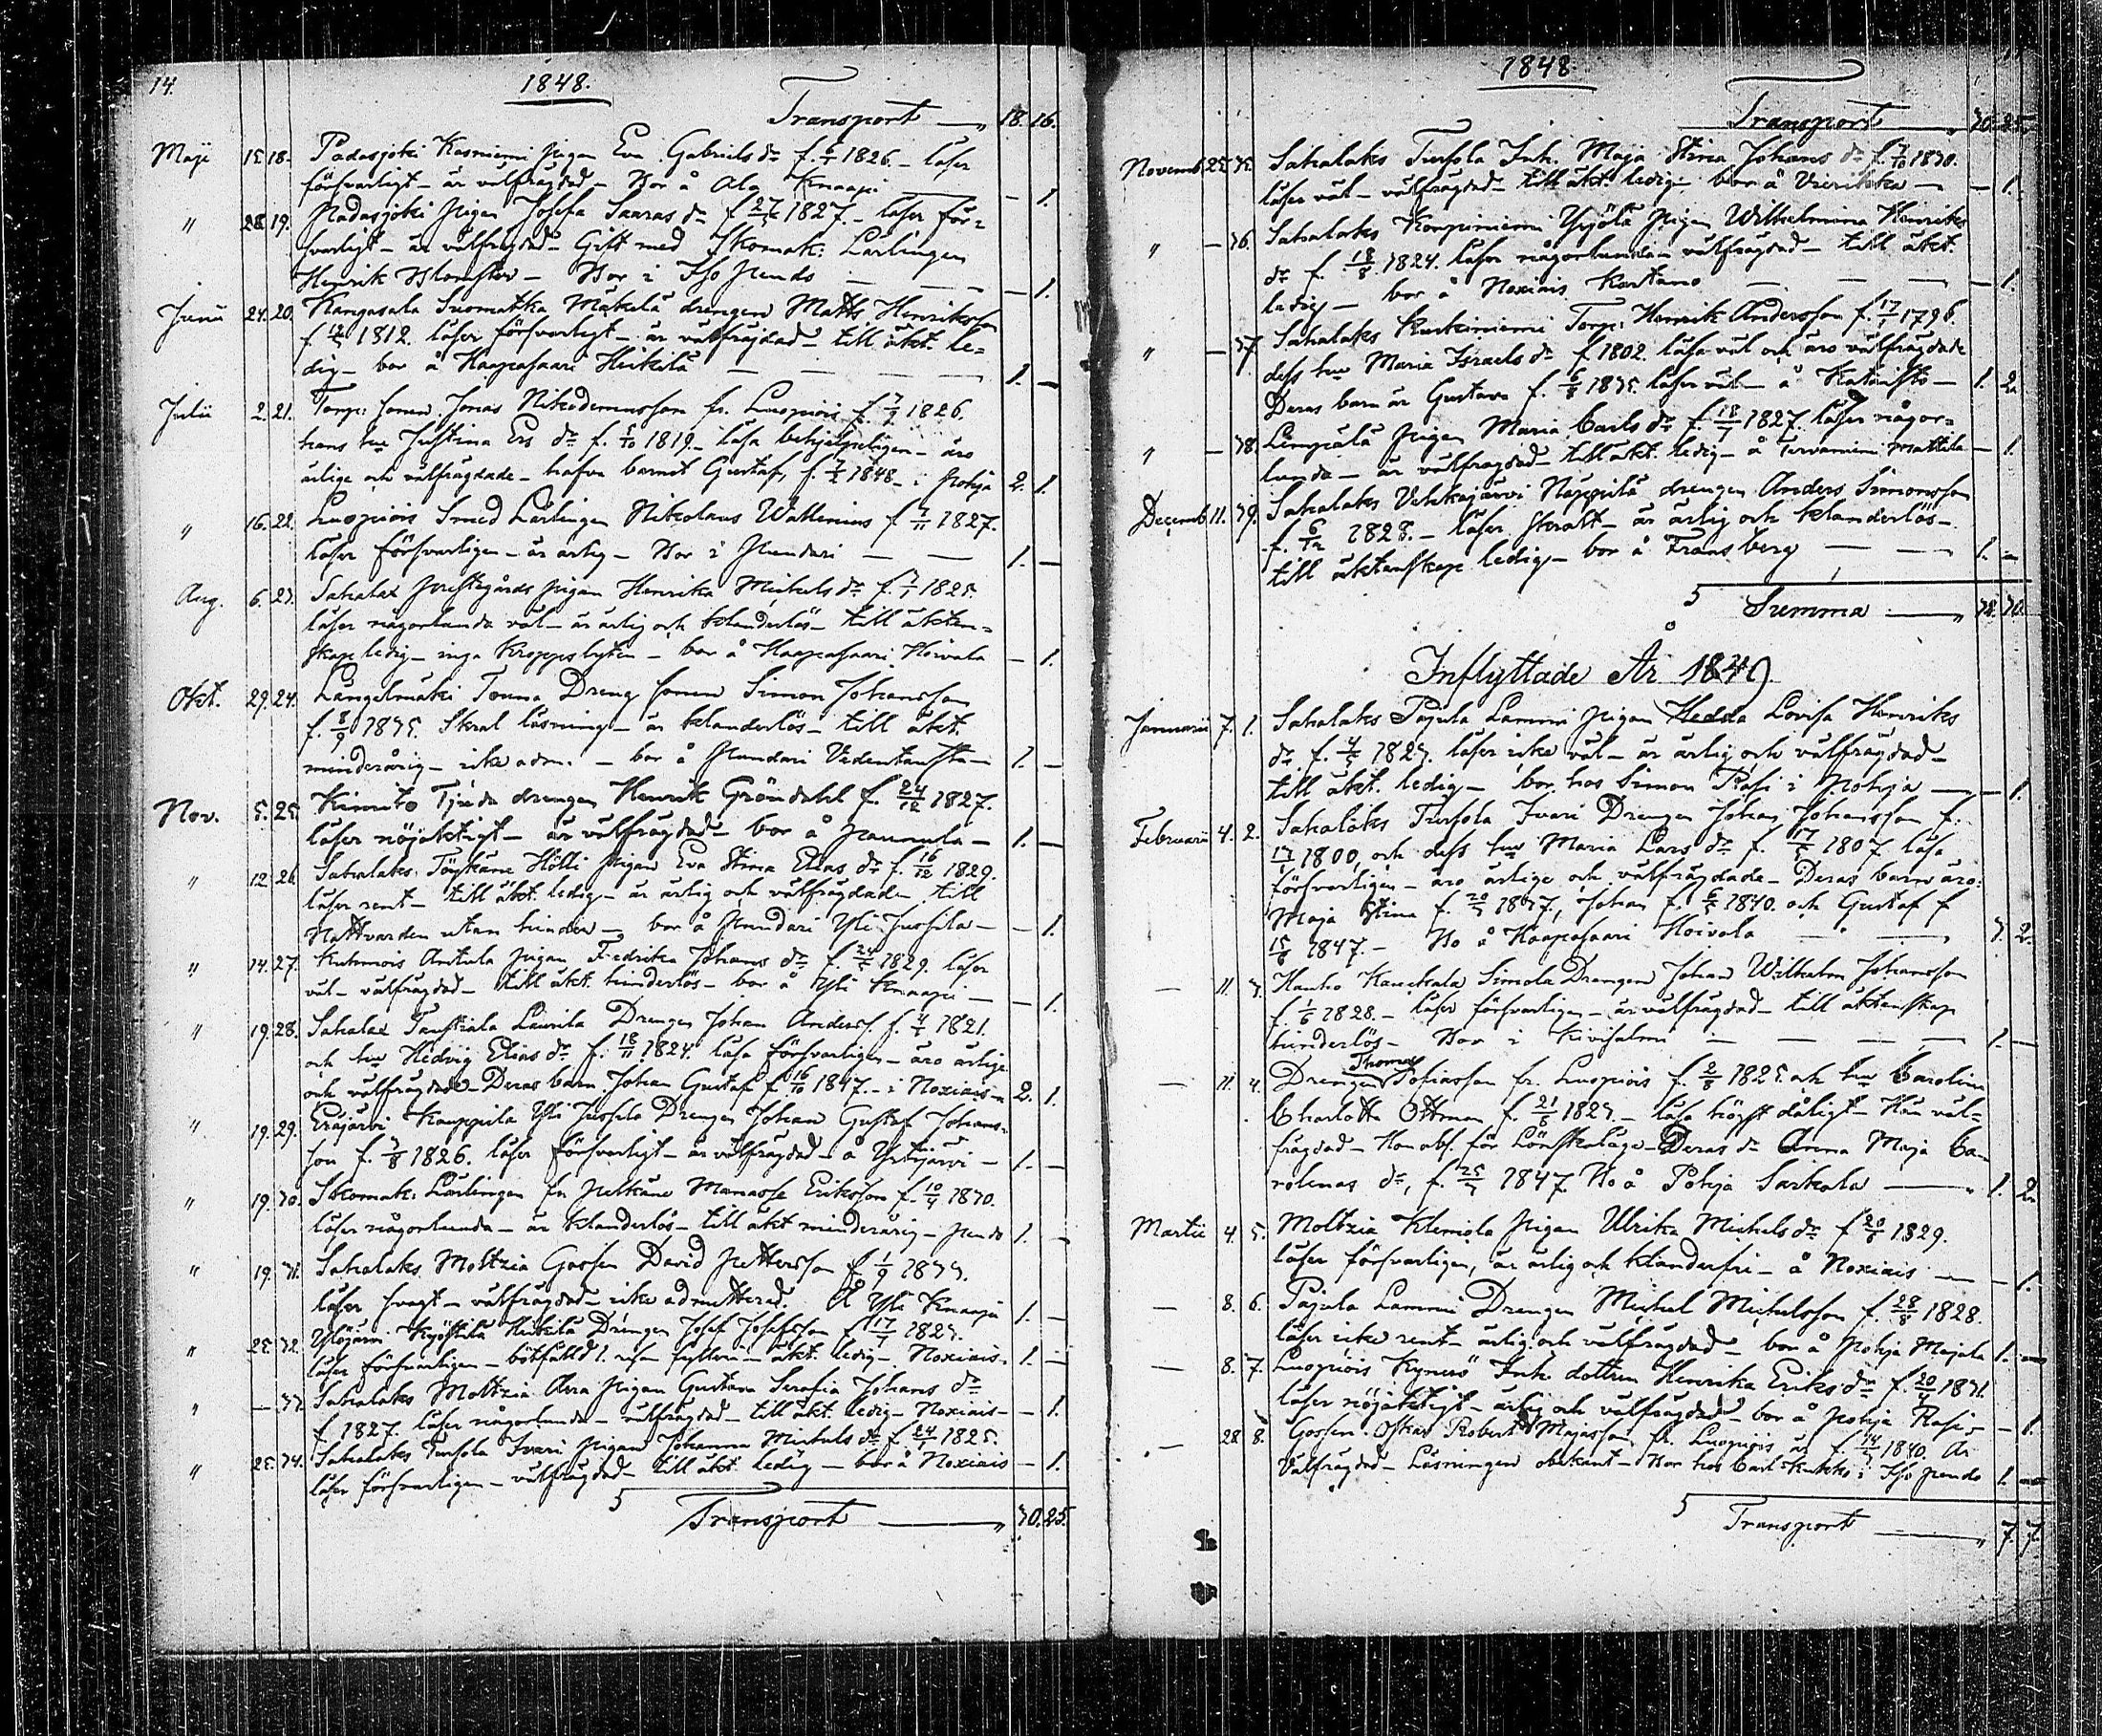 14.
1848.
Transport — 18. 16.
Maji 15. 18. Padasjoki Kasniemi pigan Eva Gabriels dr f. 1826. – läser
försvarligt – är välfrägdad – Bor å Ala Knaapi — – 1.
" 28. 19. Padasjoki Pigan Josefa Saaras dr f. 1827. – läser för=
svarligt – är välfrägdad – Gift med Skomak: Lärlingen
Henrik – Bor i Iso Pendo — – 1.
Junii 24. 20. Kangasala Suomatka Mäkelä drengen Matts Henriksson
f. 1812. läser försvarligt – är välfräjdad – till äkt. le=
dig – bor å Haapasaari Heikkilä — 1. –
Julii 2. 21. Torp: sonen Jonas Nikodemusson fr. Luopiois f. 1826.
hans hu Justina Ers dr f. 1819. – läsa behjelpeligen – äro
ärlige och välfrägdade – hafva barnet Gustaf, f. 1848. – i Pohja 2. 1.
" 16. 22. Luopiois Smed Lärlingen Nikolaus Wallenius f. 1827.
läser försvarligen – är ärlig – Bor i Pundari — 1. –
Aug. 6. 23. Sahalax Prestegårds pigan Henrika Michels dr f. 1825.
läser någorlunda väl – är ärlig och klanderlös – till äkten=
skap ledig – inga kroppslyten – bor å Haapasaari Hoivala – 1.
Okt. 29. 24. Längelmäki Touna Dreng sonen Simon Johansson
f. 8/9 1835. Skral läsning – är klanderlös – till äkt.
minderårig – icke adm. – bor å Pundari 1. –
Nov. 5. 25. Kimito Tjuda drengen Henrik Gröndahl f. 24/12 1827.
läser nöjaktigt – är välfrägdad – bor å Pannula – 1. –
" 12. 26. Sahalaks Töykänä Hölli Pigan Eva Stina Elias dr f. 16/12 1829.
läser rent – till äkt. ledig – är ärlig och välfrägdad – till
Nattvarden utan hinder – bor å Pundari Yli Jussila – – 1.
" 14. 27. Kuhmois Antula Pigan Fredrika Johans dr f. 1829. läser
väl – välfrägdad – till äkt. hinderlös – bor å Yli Knaapi – – 1.
" 19. 28. Sahalax Tauskiala Laurila Drengen Johan Anderss. f. 1821.
och hu Hedvig Elias dr f. 18/11 1824. läsa försvarligen – äro ärlige
och välfrägdade – Deras barn Johan Gustaf f. 16/10 1847. – i Noxiais 2. 1.
" 19. 29. Eräjärvi Kauppila Yli Jussila Drengen Johan Gustaf Johans=
son f. 1826. läser försvarligt – är välfrägdad – å – 1. –
" 19. 30. Skomak: Lärlingen fr. Pelkäne Manasse Eriksson f. 10/4 1830.
läser någorlunda – är klanderlös – till äkt minderårig – Pendo 1. –
" 19. 31. Sahalaks Moltzia Gossen David Pettersson f. 1/9 1833.
läser svagt – välfrägdad – icke admitterad. Å Yli Knaapi 1. –
" 25. 32. Ylöjärvi Kyöstilä Heikkilä Drengen Josef Josefsson f. 17/1 1823.
läser försvarligen – bötfälld 1. resa fylleri – äkt. ledig – Noxiais. 1. –
" – 33. Sahalaks Moltzia Pigan Gustava Serafia Johans dr
f. 1827. läser någorlunda – välfrägdad – till äkt. ledig – Noxiais – – 1.
" 25. 34. Sahalaks Tursola Ivari Pigan Johanna Michels dr f. 24/1 1825.
läser försvarligen – välfrägdad – till äkt. ledig – bor å Noxiais – 1.
Transport — 30. 25.
1848
Transport 30. 25.
Novemb. 25. 35. Sahalaks Tursola Inh. Maja Stina Johans dr f. 1830.
läser väl – välfrägdad – till äkt. ledig – bor å Vierikka — – 1.
" – 36. Sahalaks Konpiniemi Yrjölä Pigan Wilhelmina Henriks
dr f. 18/8 1824. läser någorlunda – välfrägdad – till äkt.
ledig – bor å Noxiais Kartano — – 1.
" – 37. Sahalaks Kurkiniemi Torp: Henrik Andersson f. 17/1 1796.
dess hu Maria Israels dr f. 1802. läsa väl och äro välfrägdade
Deras barn är Gustava f. 1835. läser väl – å – 1. 2.
" – 38. Lempälä Pigan Maria Carls dr f. 18/7 1827. läser någor=
lunda – är välfrägdad – till äkt. ledig – å Tervaniemi Mattila – 1.
Decemb. 11. 39. Sahalaks Vehkajärvi Näppilä drengen Anders Simonsson
f. 6/12 1828. – läser skralt – är ärlig och klanderlös –
till äktenskap ledig – bor å Fransberg — 1. –
Summa — 32. 30.
Inflyttade År 1849
Januarii 7. 1. Sahalaks Pajula Lammi Pigan Hedda Lovisa Henriks
dr f. 1823. läser icke väl – är ärlig och välfrägdad –
till äkt. ledig – bor hos Simon Räsi i Pohja — – 1.
Februarii 4. 2. Sahalaks Tursola Ivari Drengen Johan Johansson f.
1800, och dess hu Maria Lars dr f. 1807 läsa
försvarligen – äro ärlige och välfrägdade – Deras barn äro:
Maja Stina f. 1837, Johan f. 1840. och Gustaf f.
1847. – Bo å Haapasaari Hoivala — 3. 2.
– 11. 3. Hauho Kauckala Simola Drengen Johan Wilhelm Johansson
f. 1/6 1828. – läser försvarligen – är välfrägdad – till äktenskap
hinderlös – Bor i Kivisalmi — 1. –
– 11. 4. Drengen Thomas Tofiasson fr. Luopiois f. 1825. och hu Carolina
Charlotta Ottman f. 1823 – läsa högst dåligt – Han väl=
frägdad – Hon abs. för Lönskaläge – Deras dr Anna Maja Ca=
rolinas dr, f. 1847. Bo å Pohja Sarkala — 1. 2.
Martii 4. 5. Moltzia Klemola Pigan Ulrika Michels dr f. 1829.
läser försvarligen, är ärlig och klanderfri – å Noxiais — – 1.
– 8. 6. Pajula Lammi Drengen Michel Michelsson f. 28/8 1828.
läser icke rent – ärlig och välfrägdad – bor å Pohja Majala 1. –
– 8. 7. Luopiois Kyynärö Inh. dottren Henrika Eriks dr f. 20/4 1831.
läser nöjaktigt – ärlig och välfrägdad – bor å Pohja Räsi – – 1.
– 28. 8. Gossen Oskar Robert Majasson fr. Luopiois är f. 1840. Är
Välfrägdad – Läsningen obekant – Bor hos Carl Kukko i Iso Pendo 1. –
Transport — 7. 7.